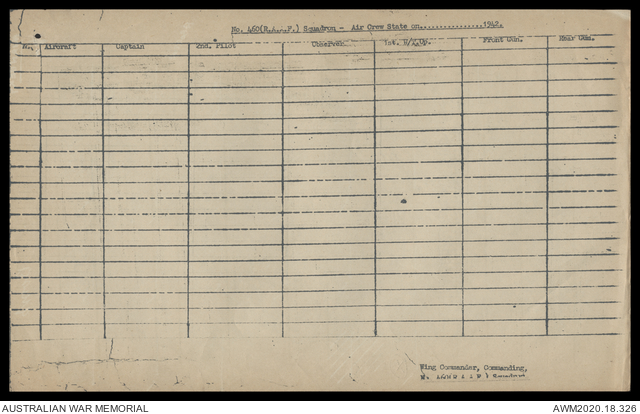 No. 460(R.A.A.F.) Squadron - Air Crew State on................1942.
No. Aircraft Captain 2nd. Pilot Observer 1st. W/Op. Front Gun. Rear Gun.
Wing Commander, Commanding,
AUSTRALIAN WAR MEMORIAL
AWM2020.18.326